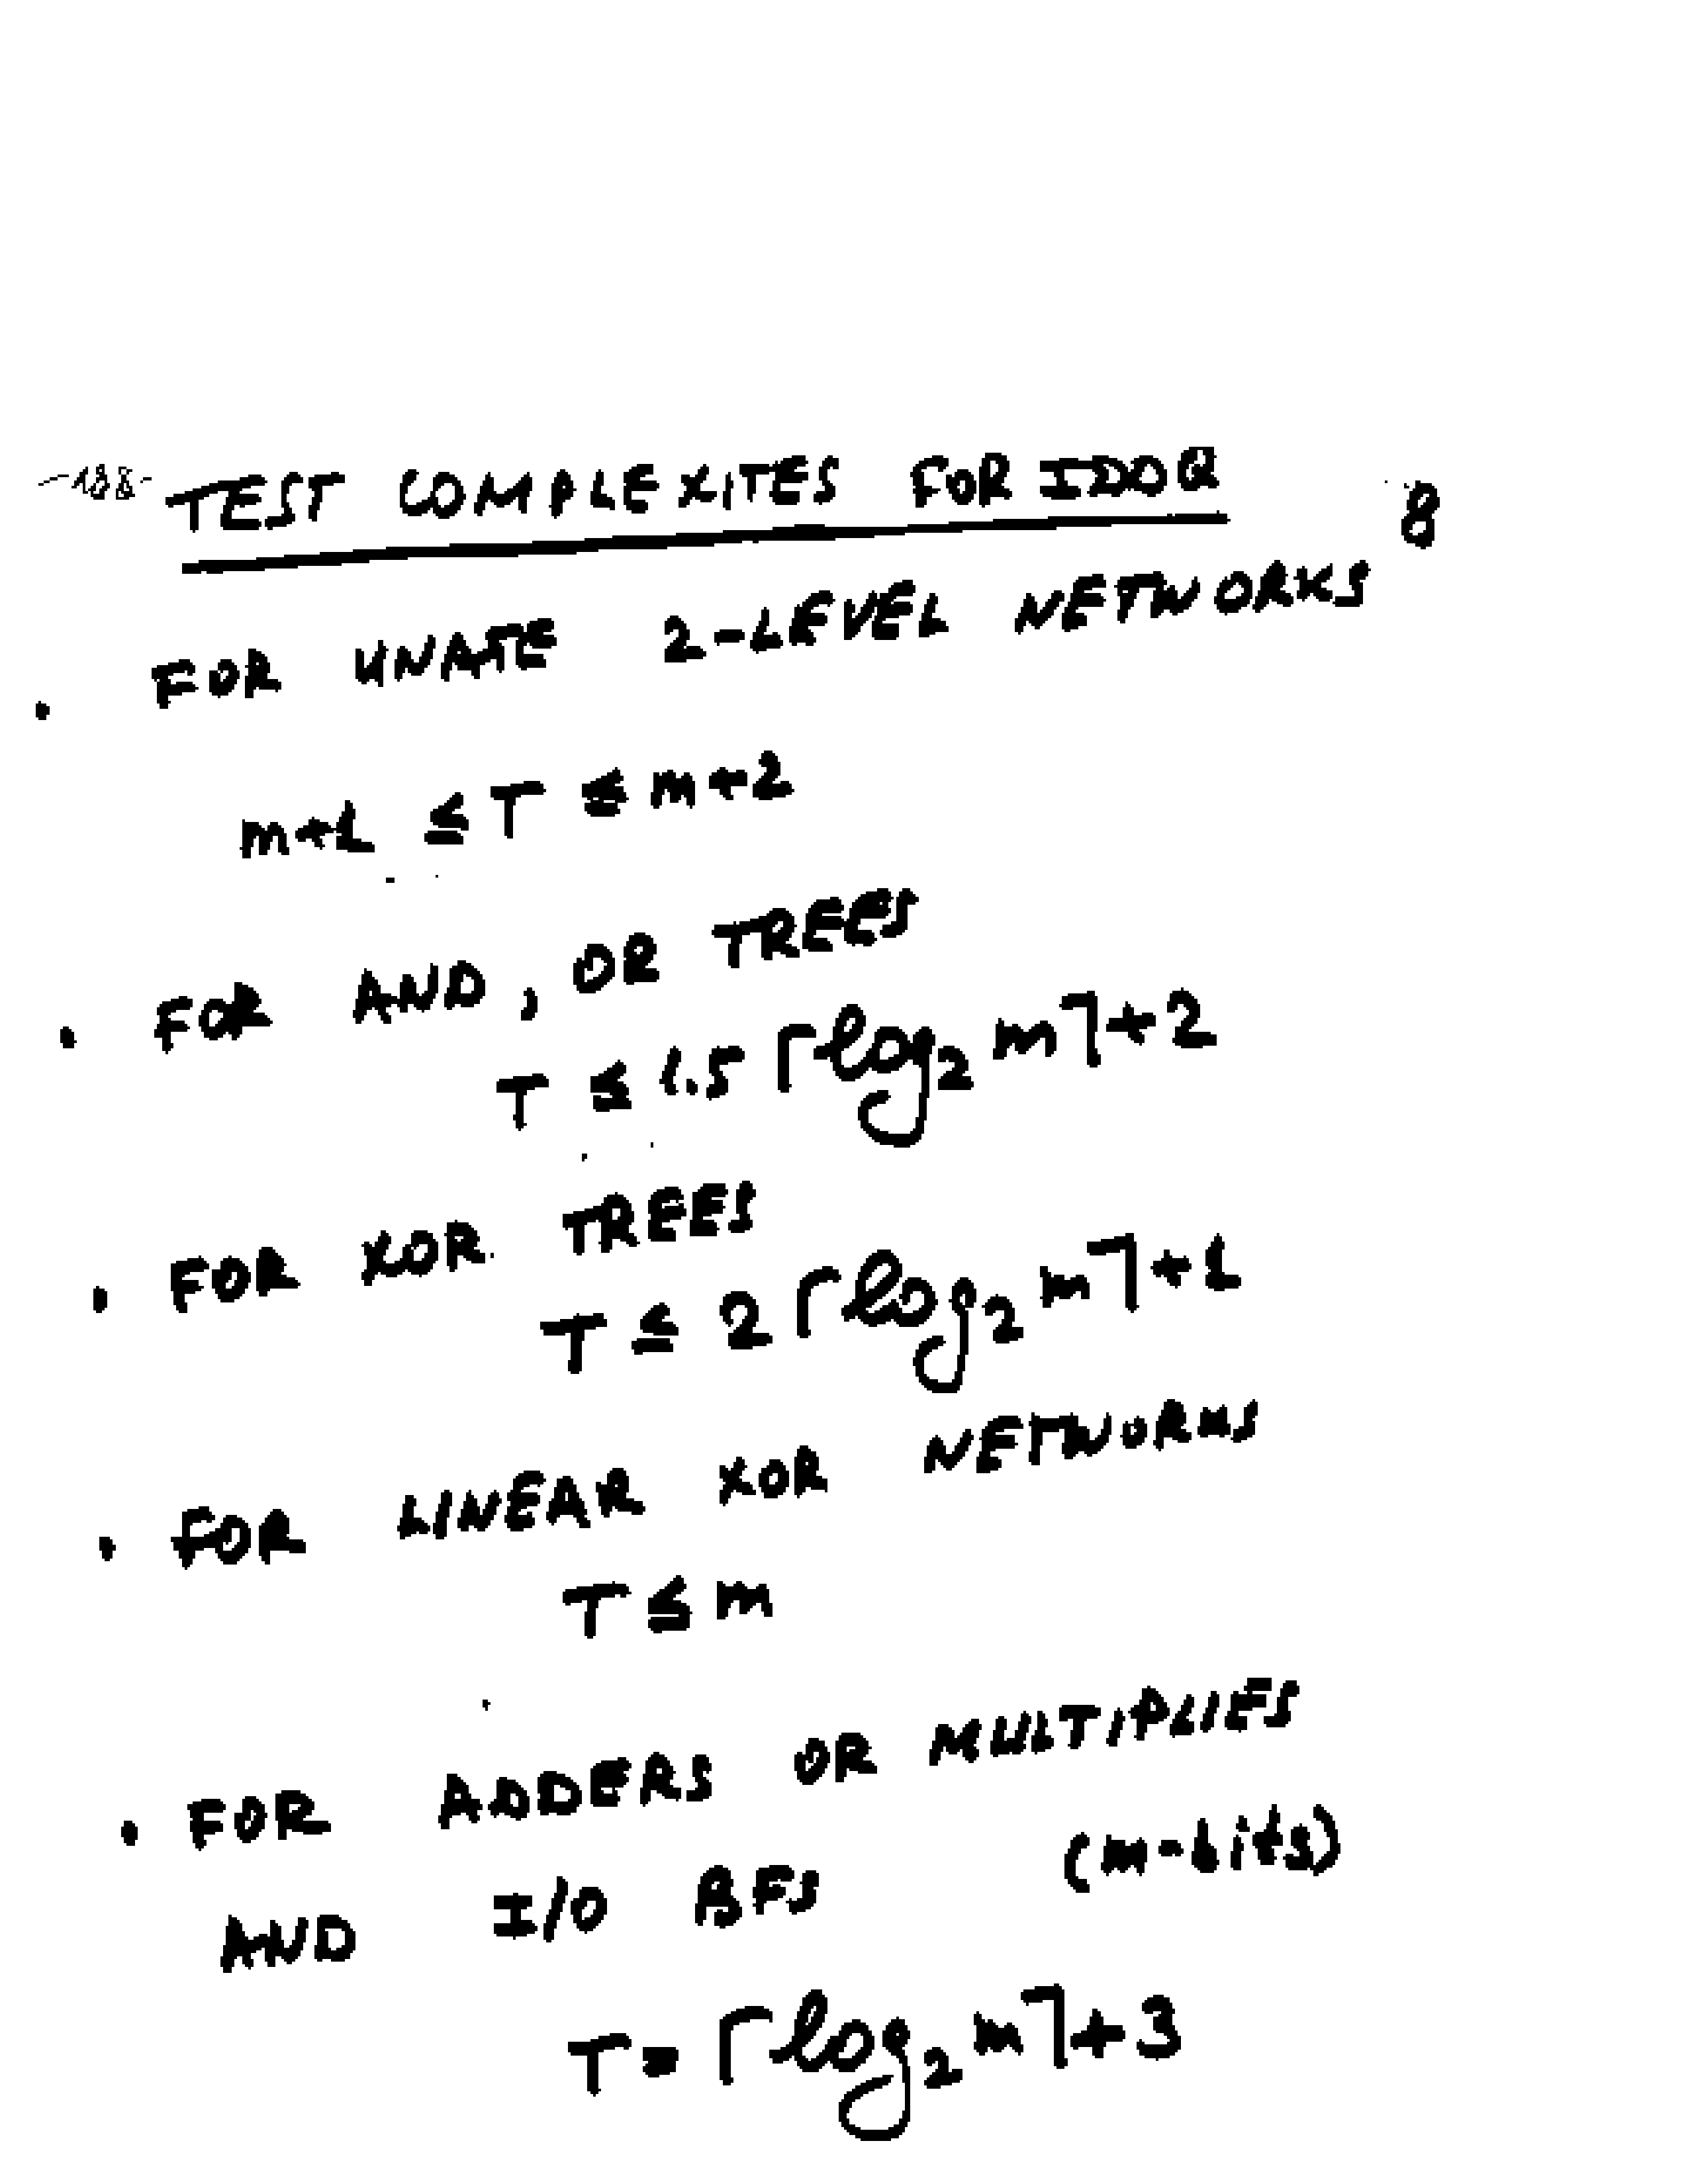 -188- TEST COMPLEXITES FOR IDDQ 8
• FOR UNATE 2-LEVEL NETWORKS
m+1 ≤ T ≤ m+2
• FOR AND, OR TREES
T ≤ 1.5 ⌈log₂ m⌉+2
• FOR XOR TREES
T ≤ 2 ⌈log₂ m⌉+1
• FOR LINEAR XOR NETWORKS
T ≤ m
• FOR ADDERS OR MULTIPLIES
AND I/O BFS (m-bits)
T = ⌈log₂ m⌉+3